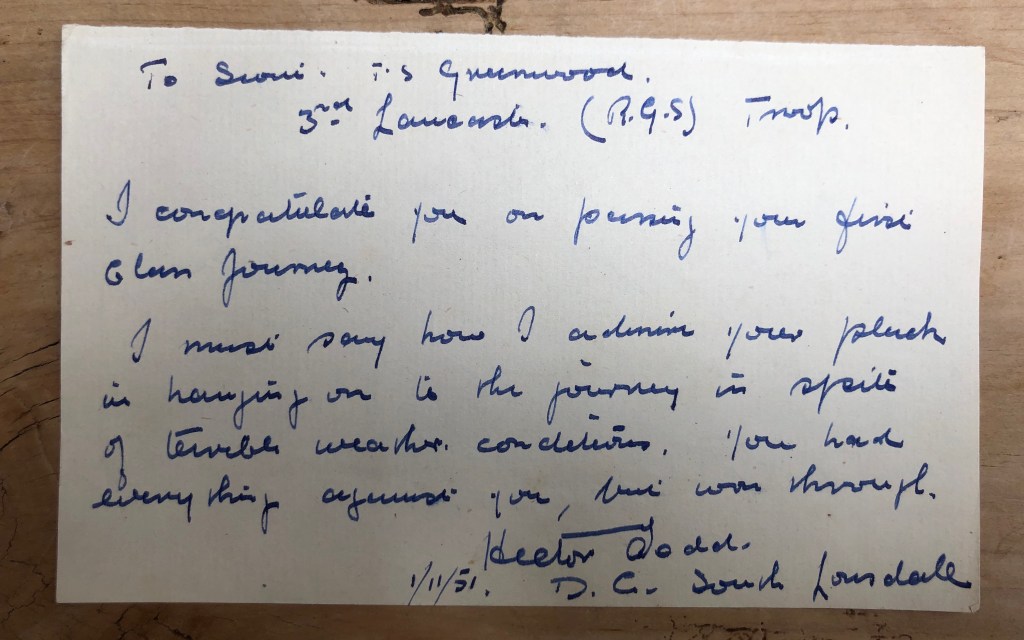 To Scout. T.S Greenwood.
3rd Lancaster. (R.G.S) Troop.
I congratulate you on passing your first
Class Journey.
I must say how I admire your pluck
in hanging on to the journey in spite
of terrible weather conditions. You had
everything against you, but won through.
Hector Dodd.
1/11/51. D.C. South Lonsdale